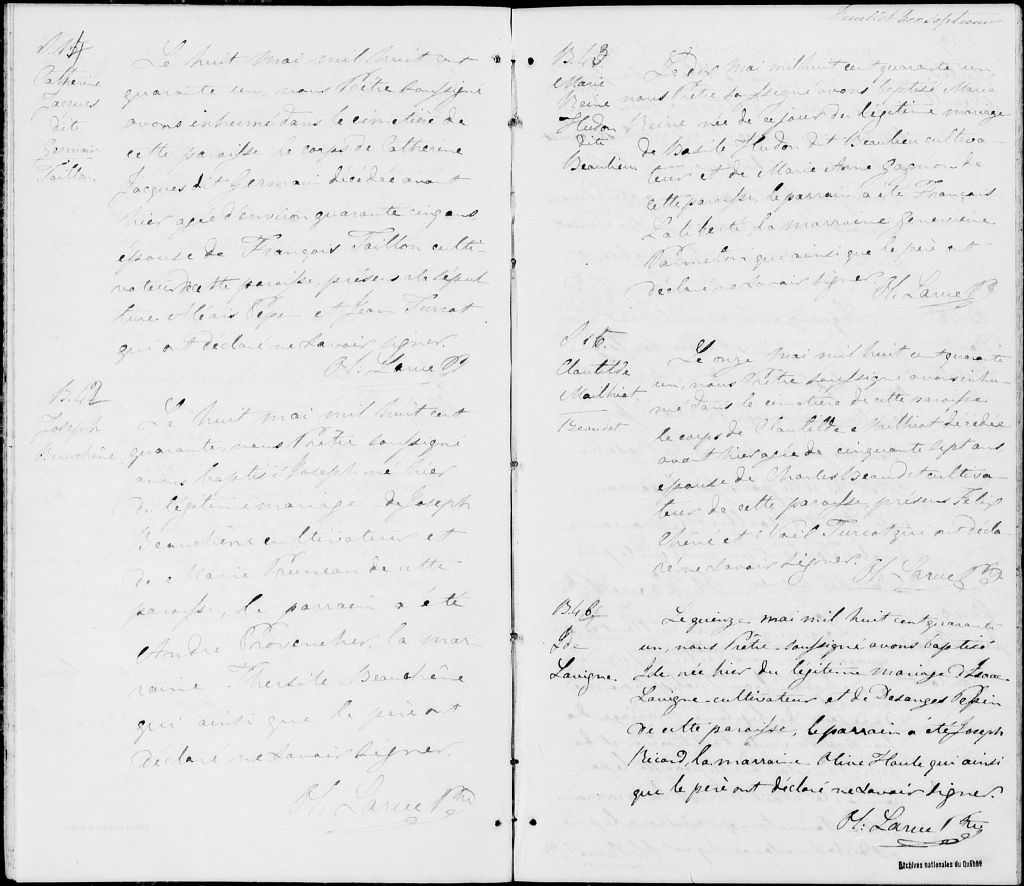 Catherine
Jacques
dit
Germain
Taillon
Le huit mai mil huit cent
quarante un, nous Prêtre soussigné
avons inhumé dans le cimetière de
cette paroisse le corps de Catherine
Jacques dit Germain décédée avant
hier agée d'environ quarante cinq ans
épouse de François Taillon culti-
vateur de cette paroisse, présens a la sépul
ture Alexis Pepin et Jean Turcot
qui ont déclaré ne savoir signer.
H: Larue Ptre
B.42
Joseph
Beauchêne
Le huit mai mil huit cent
quarante, nous Prêtre soussigné
avons baptisé Joseph né hier
du légitime mariage de Joseph
Beauchêne cultivateur et
de Marie Pruneau de cette
paroisse, le parrain a été
André Provencher, la mar
raine Thersile Beauchêne
qui ainsi que le père ont
déclaré ne savoir signer
H: Larue Ptre
feuillet septieme
B.43
Marie
Reine
Hudon
dite
Beaulieu
Le dix mai mil huit cent quarante un,
nous Prêtre soussigné avons baptisé Marie
Reine née de ce jour du légitime mariage
de Basile Hudon dit Beaulieu cultiva-
teur et de Marie Anne Gagnon de
cette paroisse, le parrain a été François
Laliberté la marraine Genevieve
Panneton qui ainsi que le père ont
déclaré ne savoir signer. H. Larue Ptre
Clautilde
Mailhiot
Beaudet
Le onze mai mil huit cent quarante
un, nous Prêtre soussigné avons inhu-
mé dans le cimetière de cette paroisse
le corps de Clautilde Mailhiot décédée
avant hier agée de cinquante sept ans
épouse de Charles Beaudet cultiva-
teur de cette paroisse, présens Felix
Chêné et Noël Turcot qui ont décla-
ré ne savoir signer. H: Larue Ptre
Ide
Lavigne.
Le quinze mai mil huit cent quarante
un, nous Prêtre soussigné avons baptisé
Ide née hier du légitime mariage d'Isaac
Lavigne cultivateur et de Desanges Pepin
de cette paroisse, le parrain a été Joseph
Ricard, la marraine Olive Houle qui ainsi
que le père ont déclaré ne savoir signer.
H: Larue Ptre
Archives nationales du Québec